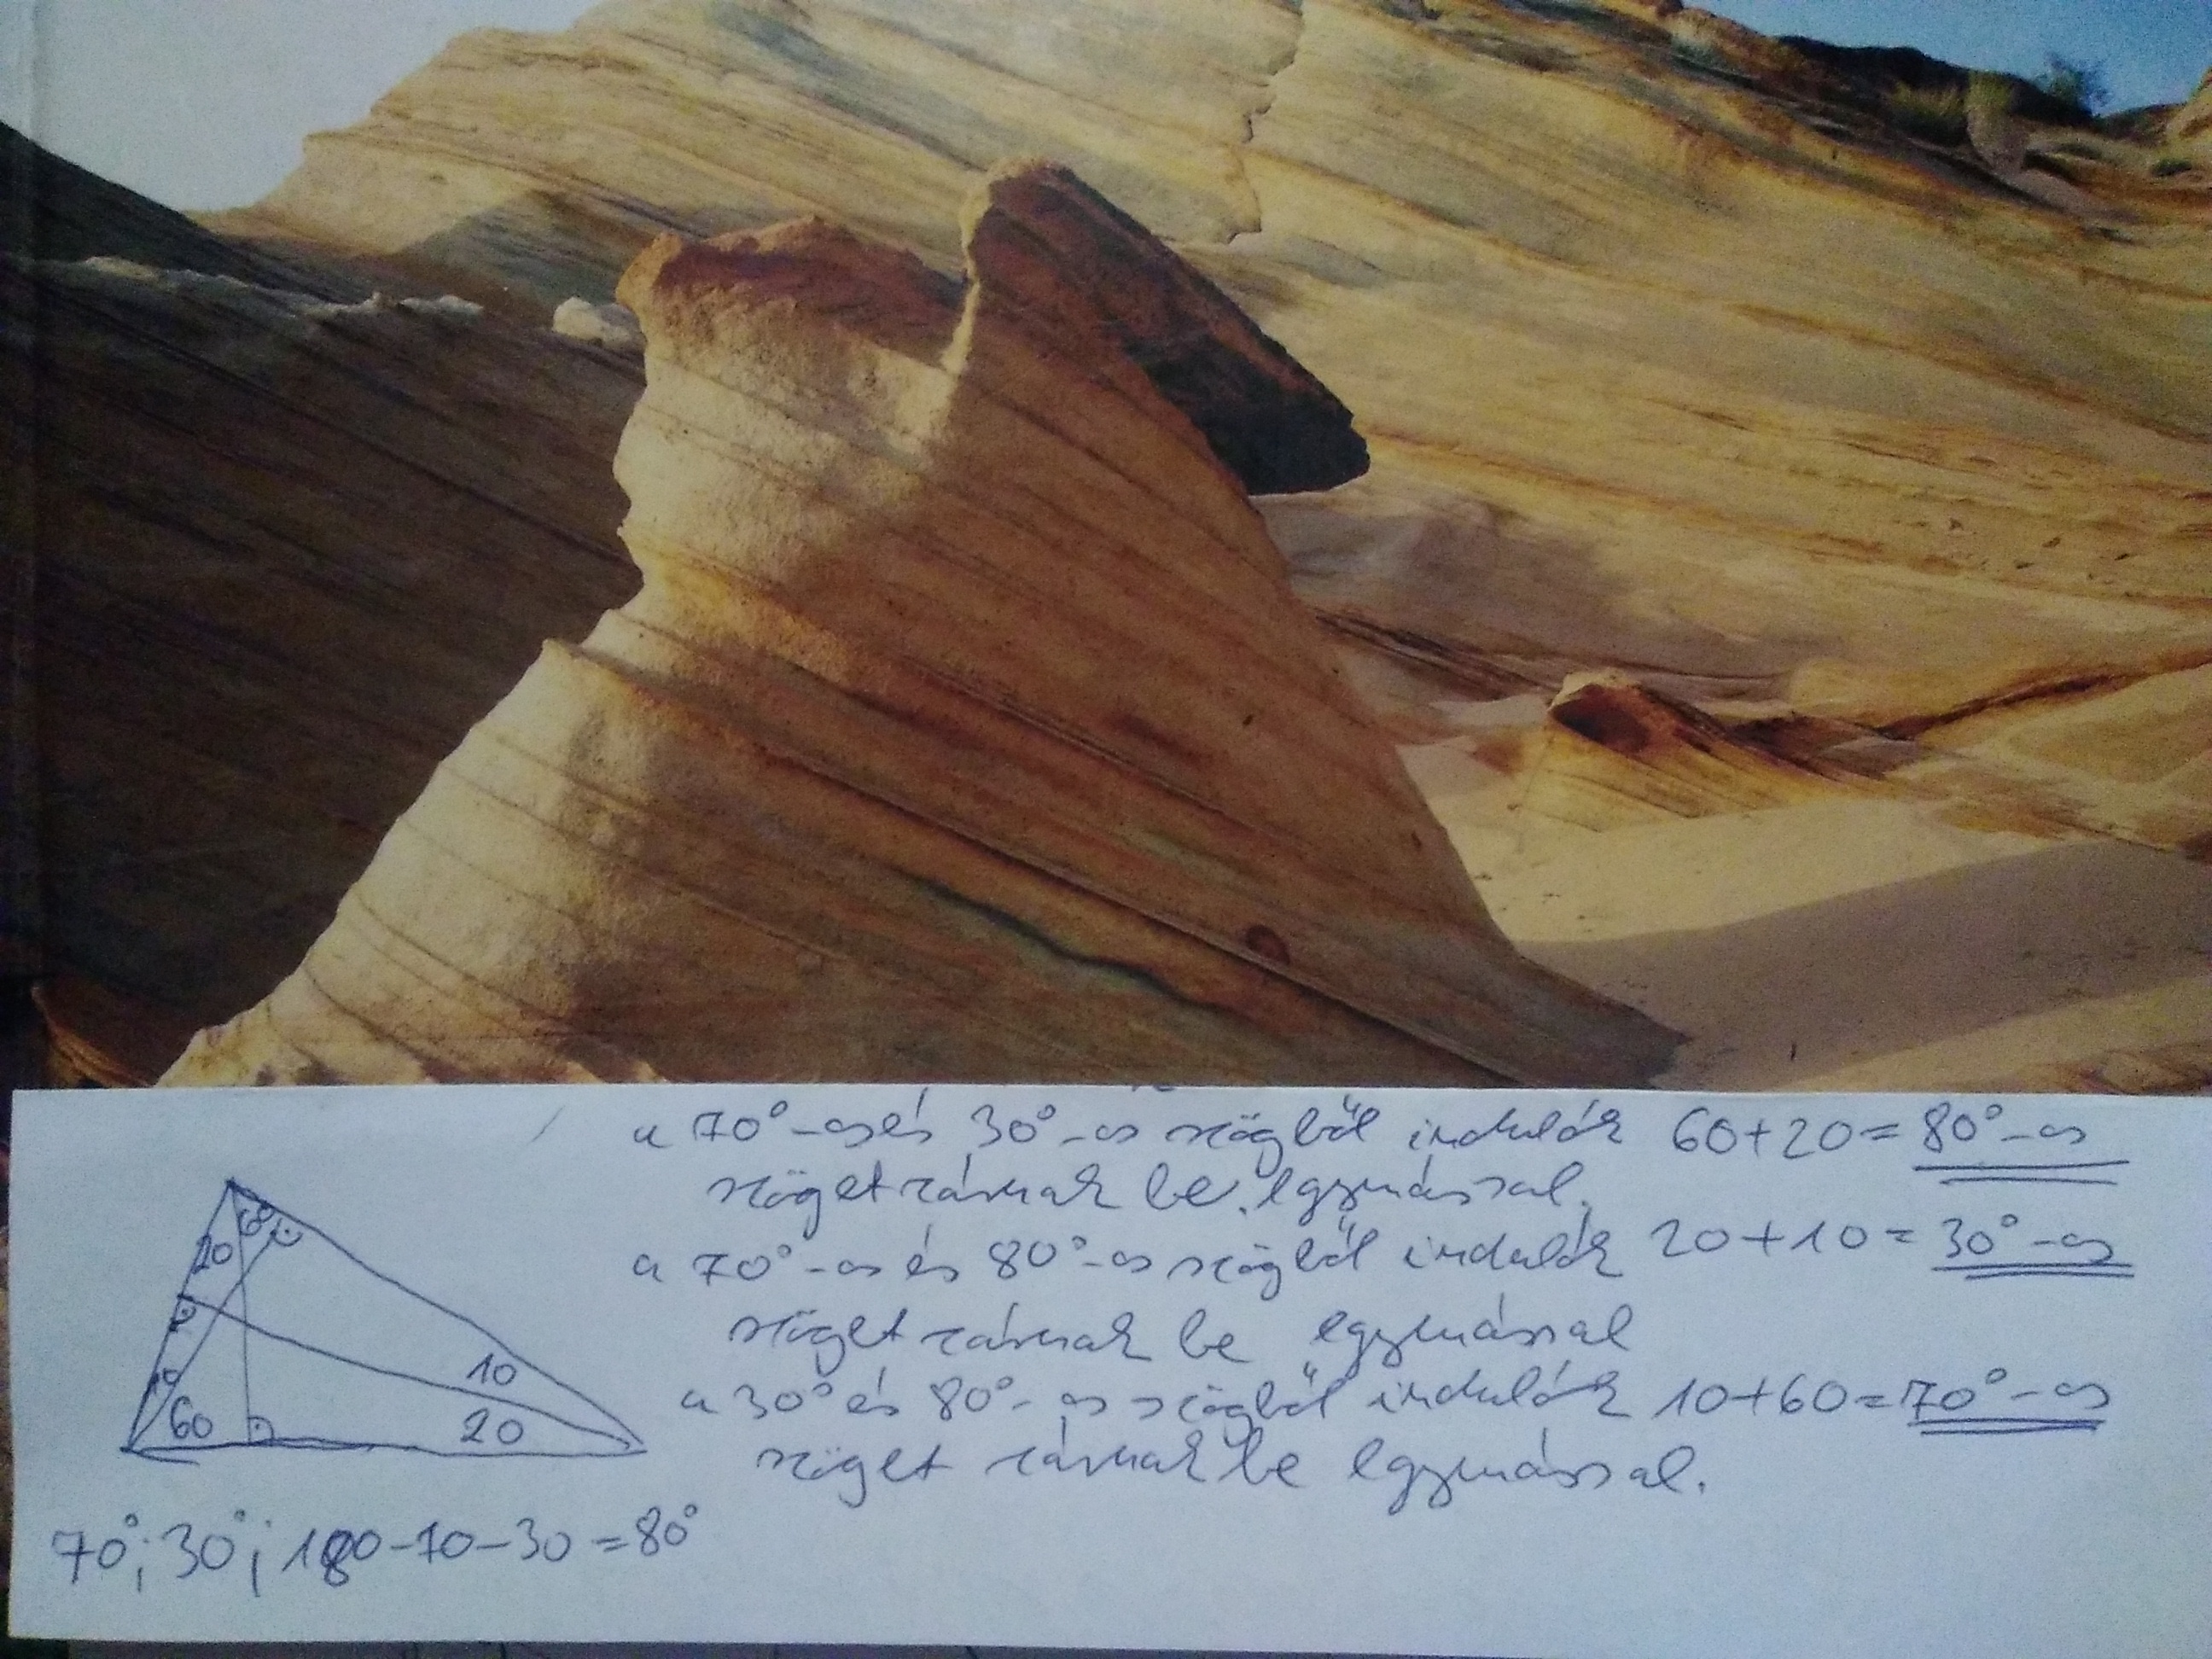 a 70°-os és 30°-os szögből indulók 60+20=80°-os
szöget zárnak be egymással.
a 70°-os és 80°-os szögből indulók 20+10=30°-os
szöget zárnak be egymással
a 30° és 80°-os szögből indulók 10+60=70°-os
szöget zárnak be egymással.
20 60
10
10
60 20
70°; 30°; 180-70-30=80°